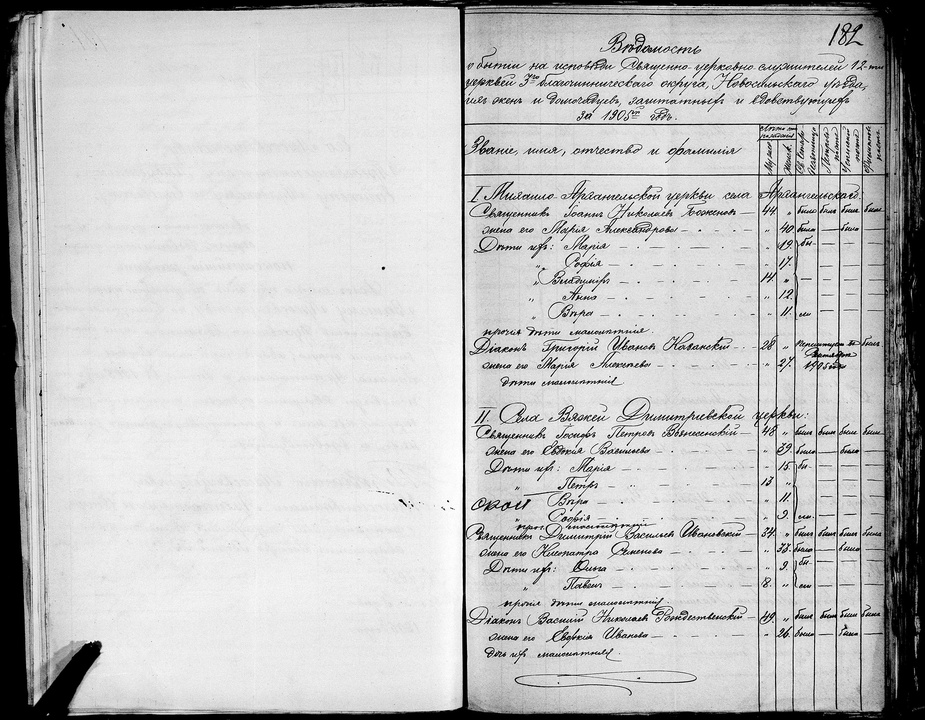 182
Вѣдомость
о бытіи на исповѣди Священно-церковно-служителей 12-ти
церквей 3го благочинническаго округа, Новосильскаго уѣзда,
ихъ женъ и домочадцевъ, заштатныхъ и вдовствующихъ
за 1905й годъ.
Званіе, имя, отчество и фамилія
I. Михаило-Архангельской церкви села Архангельскаго.
Священникъ Іоаннъ Николаевъ 44 " былъ былъ былъ былъ
жена его Марія Александрова " 40 была — была —
Дѣти ихъ: Марія " 19 бы
" Софія " 17
" Владиміръ 14 "
" Анна " 12
" Вѣра " 11 ли
прочія дѣти малолѣтнія
Діаконъ Григорій Ивановъ Казанскій 28 "
1905 года
жена его Марія Алексѣева " 27
дѣти малолѣтнія
II. Села Вяжей Димитріевской церкви:
Священникъ Іосифъ Петровъ Вознесенскій 48 " былъ былъ былъ былъ
жена его Евдокія Васильева " 39 была — была —
Дѣти ихъ: Марія " 15 бы
" Петръ 13 "
Вѣра " 11
" Софія " 9 ли
проч. малолѣтнія
Священникъ Димитрій Васильевъ Ивановскій 34 " былъ былъ былъ былъ
жена его Клеопатра Семенова " 33 была — была —
Дѣти ихъ: Ольга " 9 бы
" Павелъ 8 " ли
прочія дѣти малолѣтнія
Діаконъ Василій Николаевъ Рождественскій 49 " былъ былъ былъ былъ
жена его Евдокія Иванова " 26 была — была —
дочь ихъ малолѣтняя